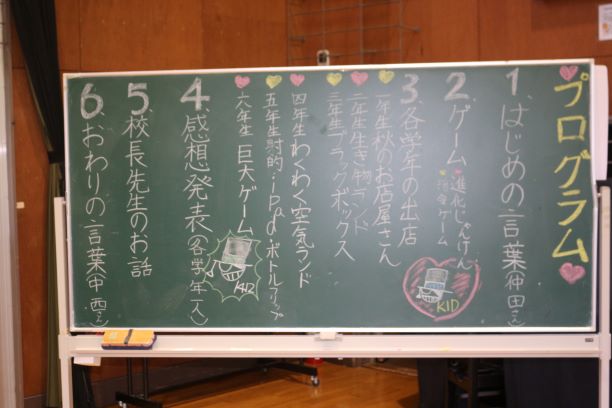 プログラム
1. はじめの言葉(仲田さん)
2. ゲーム
進化じゃんけん
ゲーム
3. 各学年の出店
一年生 秋のお店屋さん
二年生 生き物ランド
三年生 ブラックボックス
四年生 わくわく空気ランド
五年生 射的・ipadボトルフリップ
六年生 巨大ゲーム
4. 感想発表(各学年一人)
5. 校長先生のお話
6. おわりの言葉(中西さん)
KID
KID